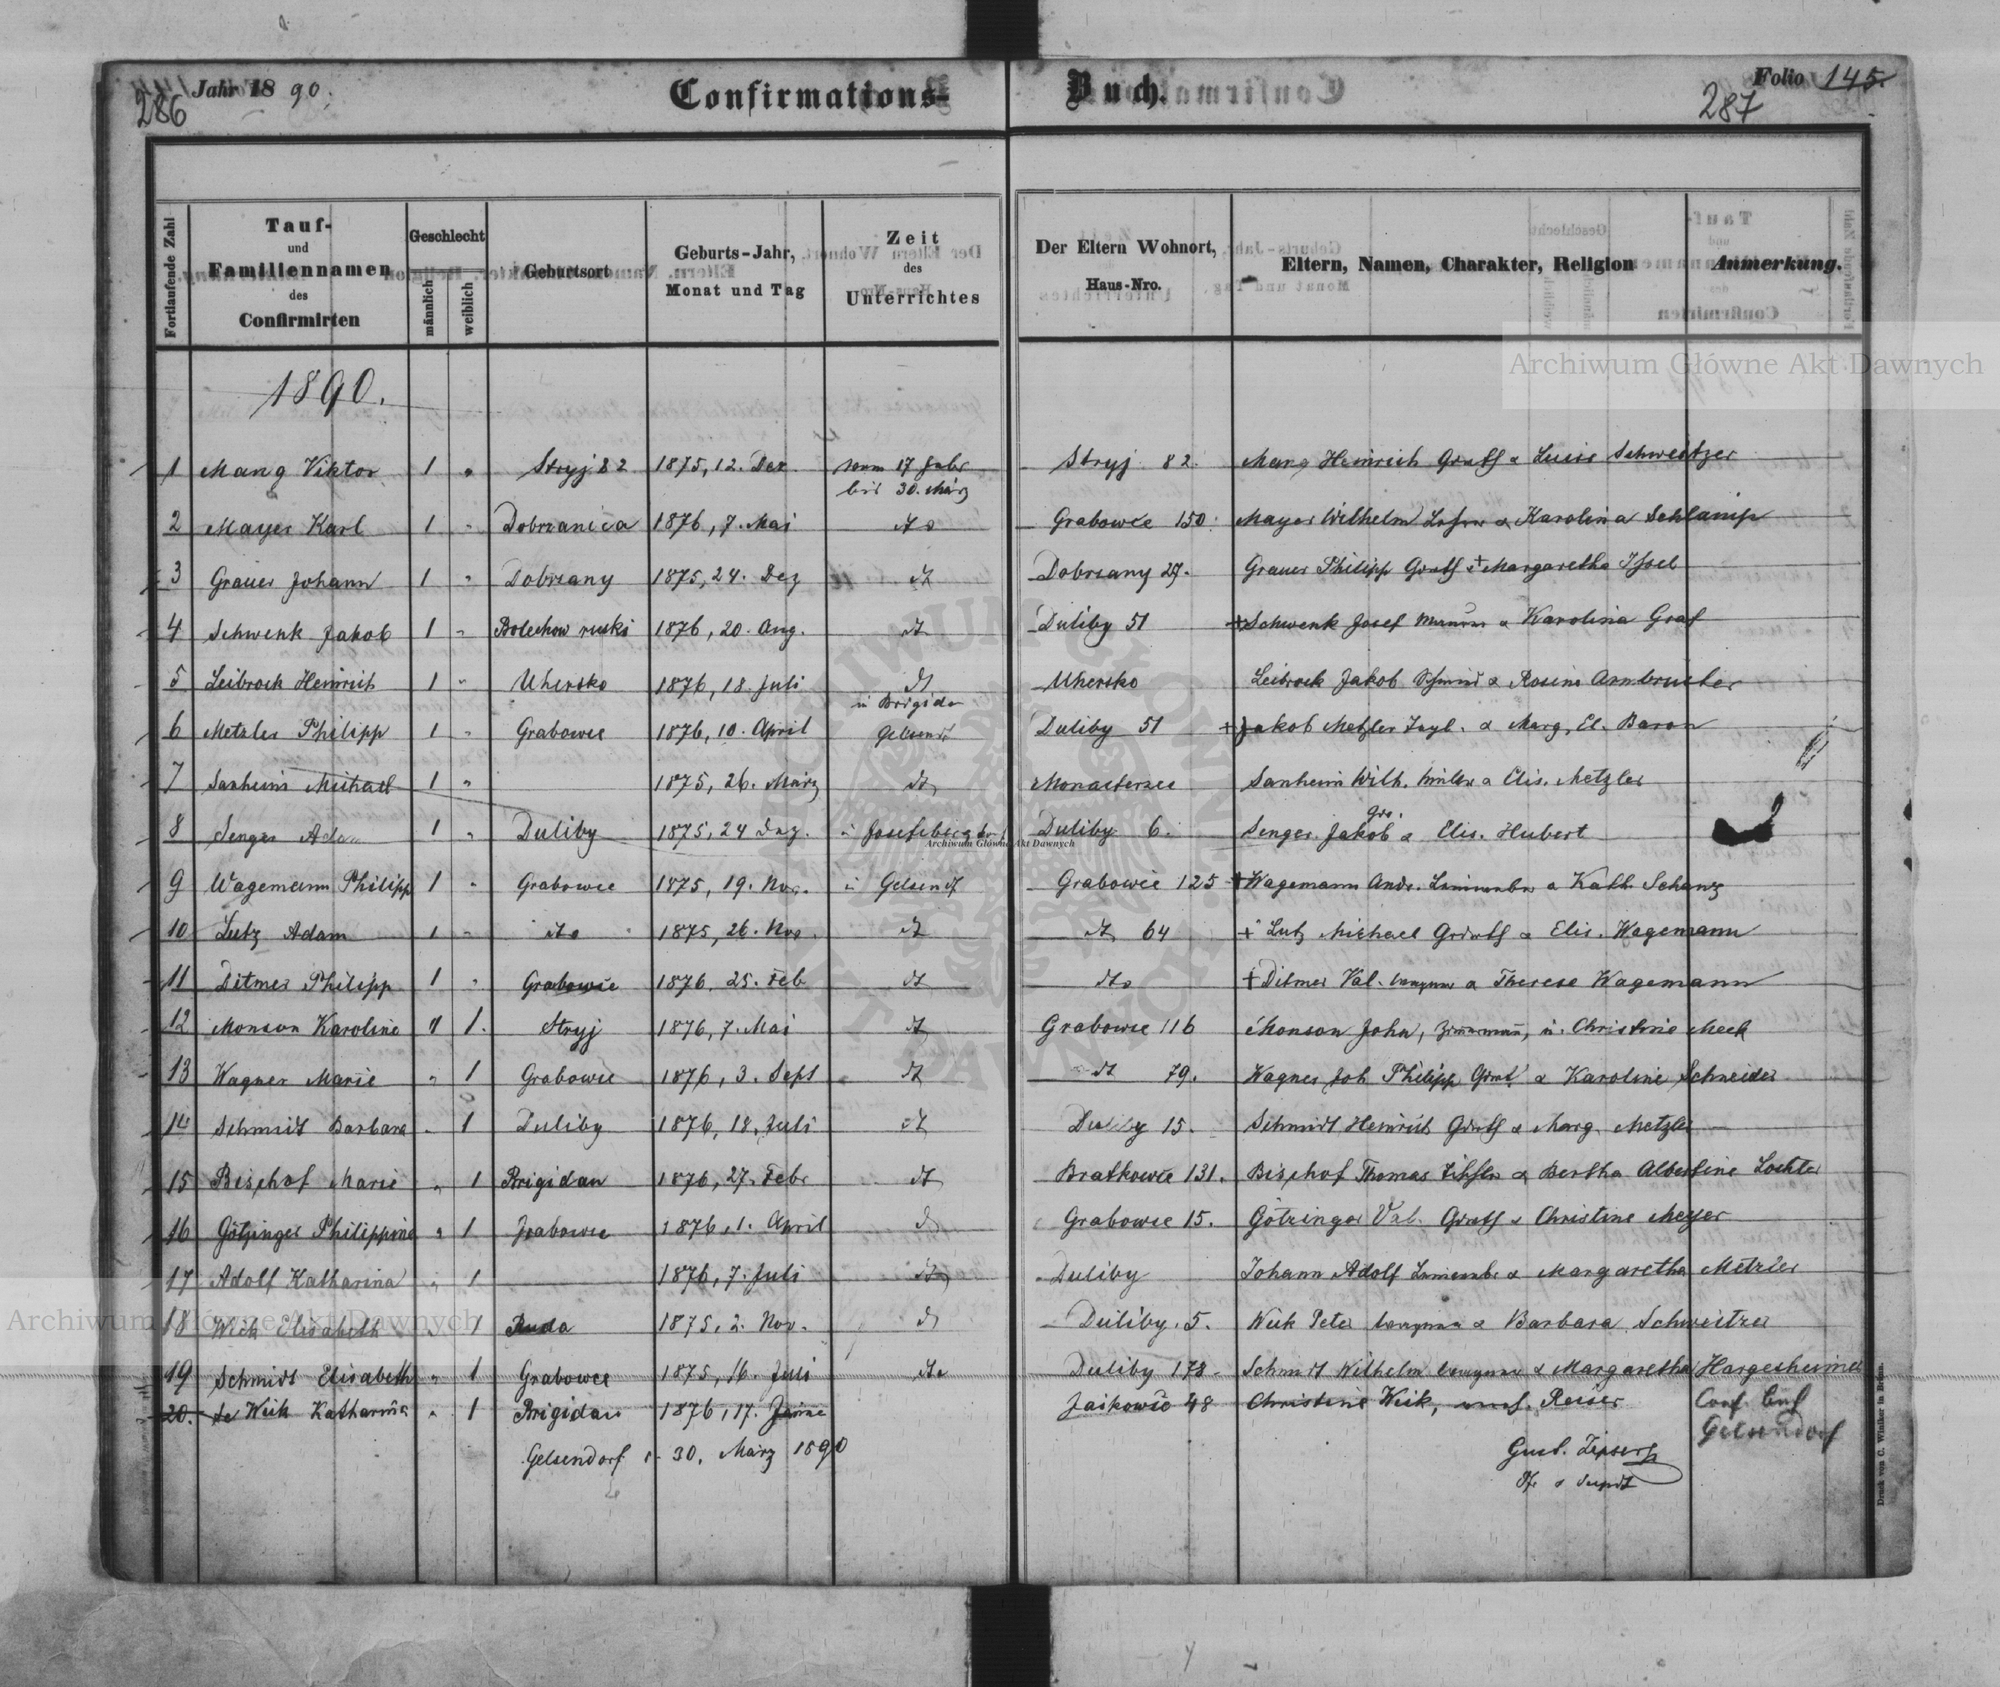 286
Jahr 1890.
Confirmations-Buch.
Folio 145.
287
Fortlaufende Zahl
Tauf- und Familiennamen des Confirmirten
Geschlecht
männlich
weiblich
Geburtsort
Geburts-Jahr, Monat und Tag
Zeit des Unterrichtes
Der Eltern Wohnort, Haus-Nro.
Eltern, Namen, Charakter, Religion
Anmerkung.
1890.
1 Mang Viktor 1 " Stryj 82 1875, 12. Dez vom 17 Jabr bis 30. März Stryj 82. Mang Heinrich Grdth & Luise Schweitzer
2 Mayer Karl 1 " Dobrzanica 1876, 7. Mai dto Grabowce 150. Mayer Wilhelm & Karolina Schlamp
3 Grauer Johann 1 " Dobrzany 1875, 24. Dez dt Dobrzany 27. Grauer Philipp Grdth & + Margaretha
4 Schwenk Jakob 1 " Bolechow ruski 1876, 20. Aug. dt Duliby 51 + Schwenk Josef Maurer & Karolina Graf
5 Leibrock Heinrich 1 " Uhersko 1876, 18. Juli dt in Brigidau Uhersko Leibrock Jakob Schmied & Rosina Armbruster
6 Metzler Philipp 1 " Grabowce 1876, 10. April Gelsend Duliby 51 + Jakob Metzler Tagl. & Marg. El. Baron
7 Sanheim Michael 1 " 1875, 26. März dt Monasterzec Sanheim Wilh. & Elis. Metzler
8 Senger Adam 1 " Duliby 1875, 24 Dez. in Josefsberg Duliby 6. Senger Jakob Gr. & Elis. Hubert
9 Wagemann Philipp 1 " Grabowce 1875, 19. Nov. in Gelsendf Grabowce 125 + Wagemann Andr. & Kath. Schanz
10 Lutz Adam 1 " dto 1875, 26. Nov. dt dt 64 + Lutz Michael Grdth & Elis. Wagemann
11 Ditmer Philipp 1 " Grabowce 1876. 25. Feb dt dto + Ditmer Val. & Therese Wagemann
12 Monson Karoline 1 1. Stryj 1876, 7. Mai dt Grabowce 116 Monson John, Zimmermann, u. Christine Meck
13 Wagner Marie " 1 Grabowce 1876, 3. Sept dt dt 79. Wagner Joh Philipp Grdth & Karoline Schneider
14 Schmidt Barbara " 1 Duliby 1876, 18. Juli dt Duliby 15. Schmidt Heinrich Grdth & Marg. Metzler
15 Bischof Marie " 1 Brigidau 1876, 27. Febr dt Bratkowce 131. Bischof Thomas Tischler & Bertha Albertine
16 Götzinger Philippine " 1 Grabowce 1876, 1. April dt Grabowce 15. Götzinger Val. Grdth & Christine Meyer
17 Adolf Katharina " 1 1876, 7. Juli dto Duliby Johann Adolf & Margaretha Metzler
18 Wick Elisabeth " 1 Ruda 1875, 2. Nov. dt Duliby. 5. Wick Peter & Barbara Schweitzer
19 Schmidt Elisabeth " 1 Grabowce 1875, 16. Juli dto Duliby 178. Schmidt Wilhelm & Margaretha Hargesheimer
20. Weik Katharina " 1 Brigidau 1876, 17. Jänne Jaikowce 48 Christine Weik, Reiser Conf.
Gelsendorf
Gelsendorf 30. März 1890
Gust. Zipser
Pfr
Druck von C. Winiker in Brünn.
Archiwum Główne Akt Dawnych
Archiwum Główne Akt Dawnych
Archiwum Główne Akt Dawnych
ARCHIWUM GŁÓWNE AKT DAWNYCH